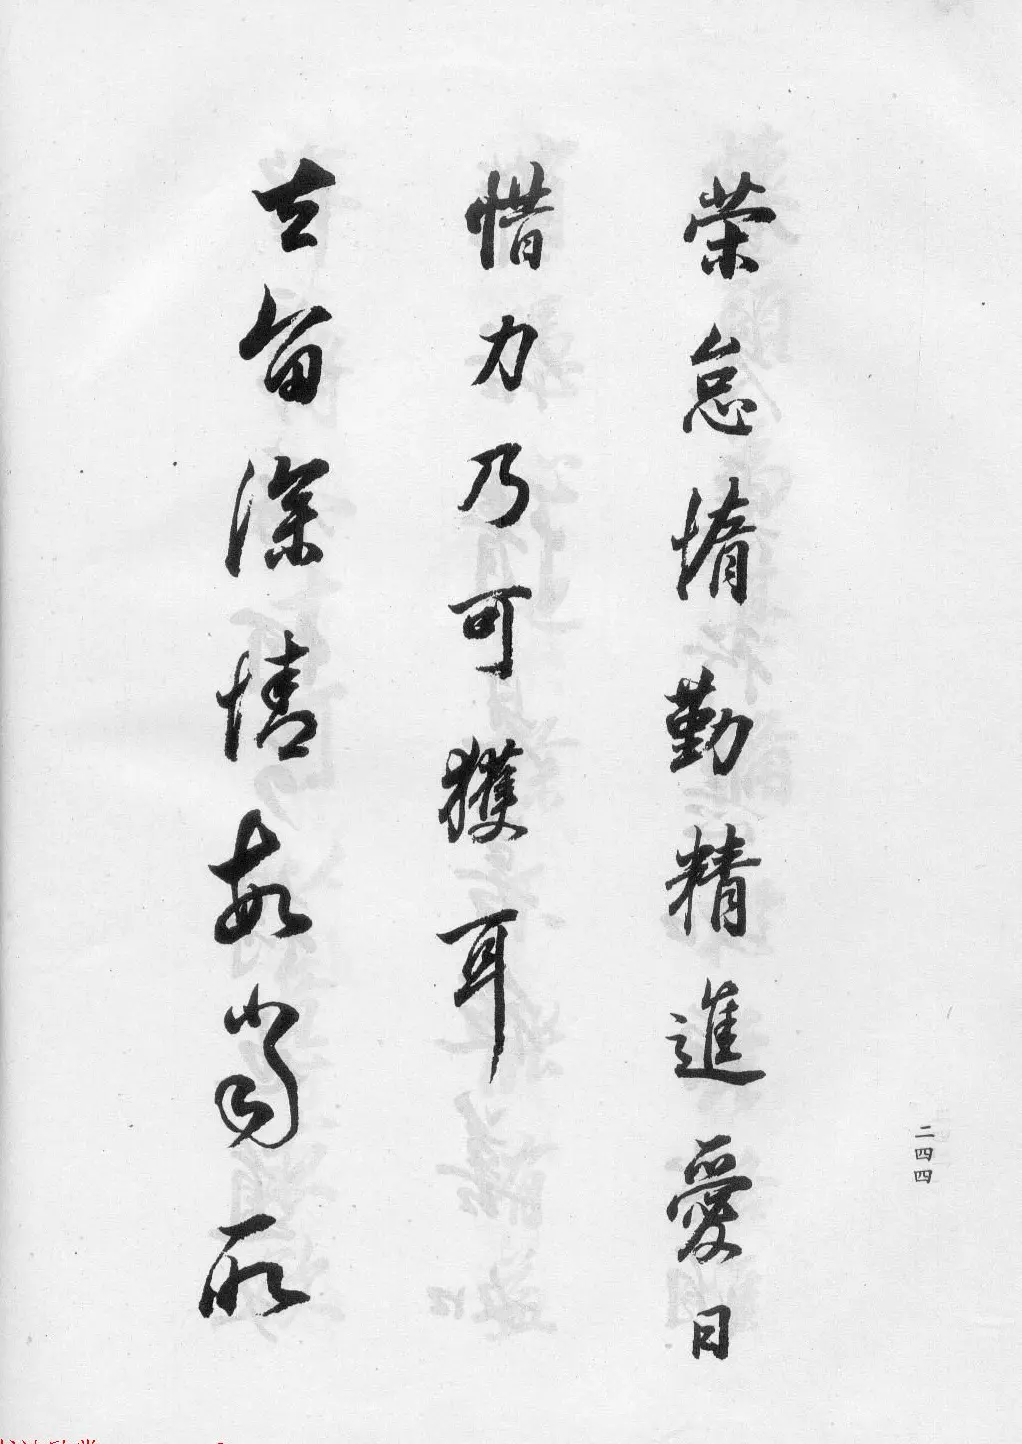 荣怠惰勤精進愛日
惜力乃可獲耳
去留深情每當所
二四四